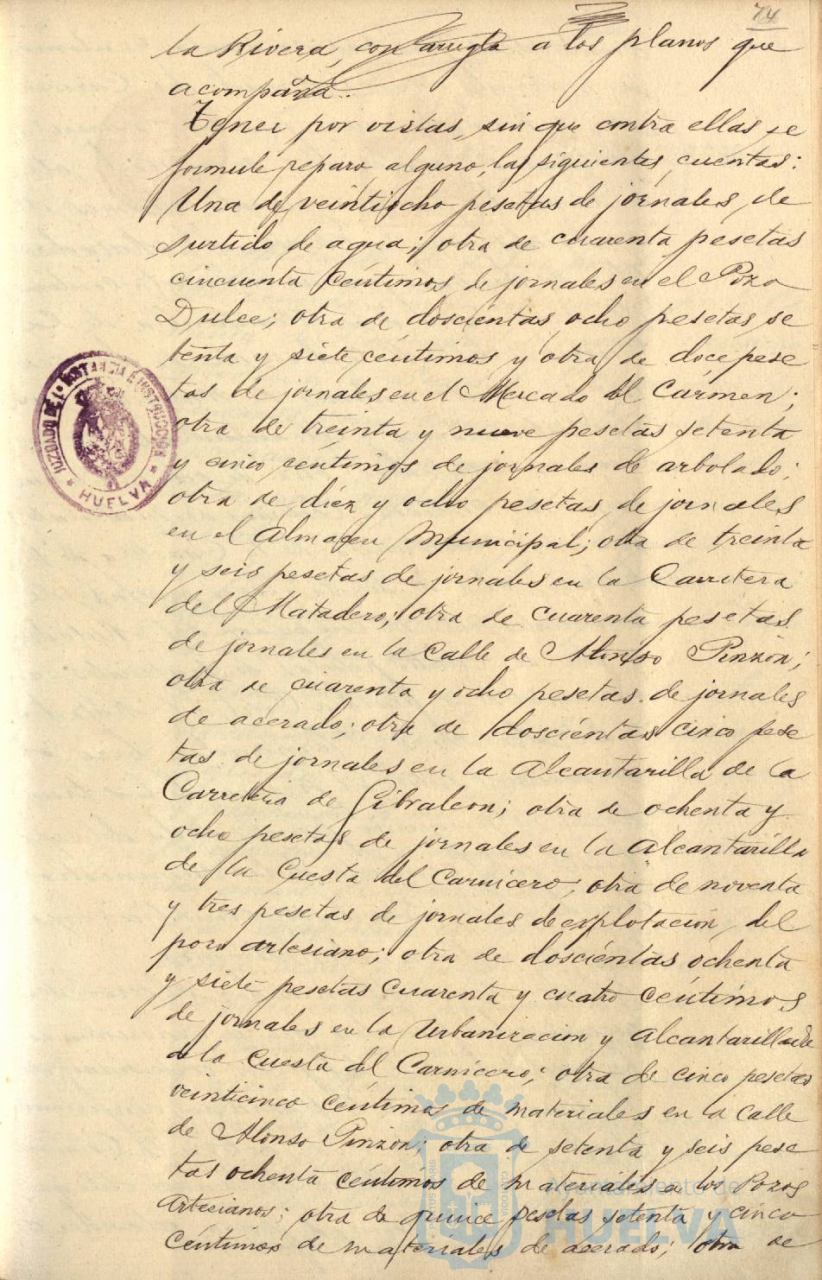 74
la Rivera, con arreglo a los planos que
acompaña.
Tener por vistas, sin que contra ellas se
formule reparo alguno, las siguientes cuentas:
Una de veintiocho pesetas de jornales de
surtido de agua; otra de cuarenta pesetas
cincuenta céntimos de jornales en el Pozo
Dulce; otra de doscientas ocho pesetas se
tenta y siete céntimos y otra de doce pese
tas de jornales en el Mercado del Carmen;
otra de treinta y nueve pesetas setenta
y cinco céntimos de jornales de arbolado;
otra de diez y ocho pesetas de jornales
en el Almacen Municipal; otra de treinta
y seis pesetas de jornales en la Carretera
del Matadero; otra de cuarenta pesetas
de jornales en la Calle de Alonso Pinzón;
otra de cuarenta y ocho pesetas de jornales
de acerado; otra de doscientas cinco pese
tas de jornales en la Alcantarilla de la
Carretera de Gibraleon; otra de ochenta y
ocho pesetas de jornales en la Alcantarilla
de la Cuesta del Carnicero; otra de noventa
y tres pesetas de jornales de explotación del
pozo artesiano; otra de doscientas ochenta
y siete pesetas cuarenta y cuatro céntimos
de jornales en la Urbanizacion y Alcantarillado
de la Cuesta del Carnicero; otra de cinco pesetas
veinticinco céntimos de materiales en la Calle
de Alonso Pinzon; otra de setenta y seis pese
tas ochenta céntimos de materiales a los Pozos
Artesianos; otra de quince pesetas setenta y cinco
céntimos de materiales de acerado; otra de
JUZGADO DE 1ª INSTANCIA E INSTRUCCION
HUELVA
Ayuntamiento de
HUELVA